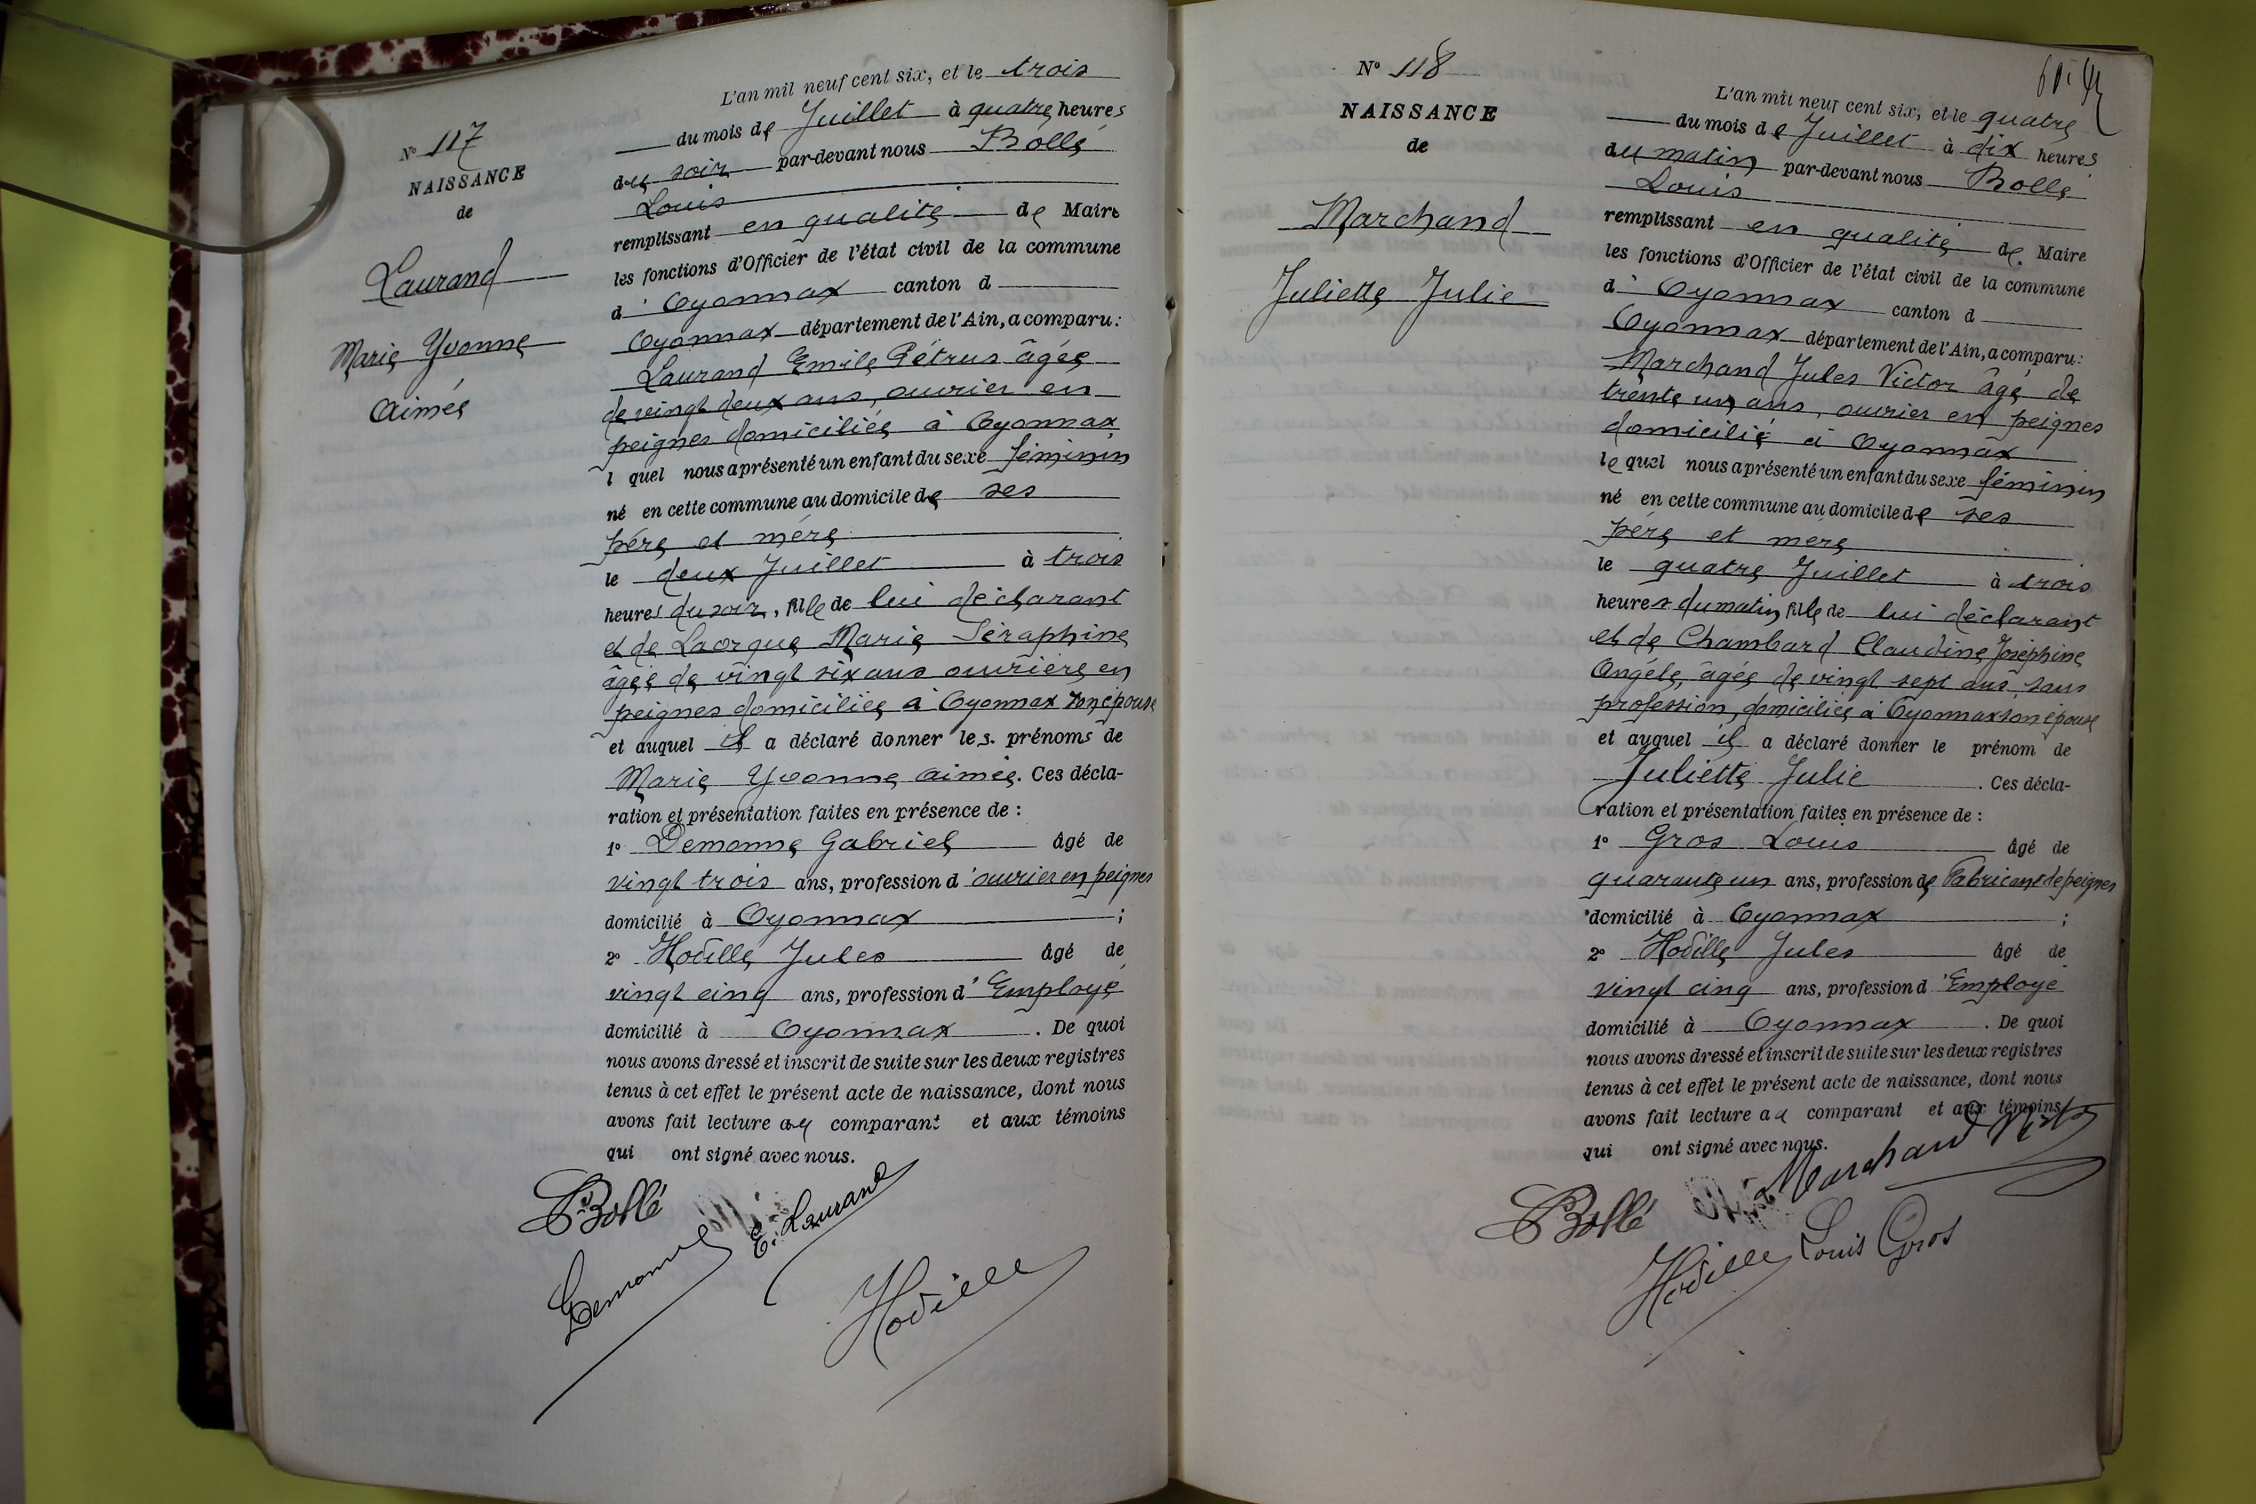 N° 117
NAISSANCE
de
Laurand
Marie Yvonne
Aimée
L'an mil neuf cent six, et le trois
du mois de Juillet à quatre heures
du soir par-devant nous Bollé
Louis
remplissant en qualité de Maire
les fonctions d'Officier de l'état civil de la commune
d'Oyonnax canton d
Oyonnax département de l'Ain, a comparu:
Laurand Emile Pétrus âgée
de vingt deux ans, ouvrier en
peignes domiciliée à Oyonnax
l quel nous a présenté un enfant du sexe féminin
né en cette commune au domicile de ses
père et mère
le deux Juillet à trois
heures du soir, fille de lui déclarant
et de Lacroque Marie Séraphine
âgée de vingt six ans ouvrière en
peignes domiciliée à Oyonnax son épouse
et auquel il a déclaré donner les prénoms de
Marie Yvonne Aimée. Ces décla-
ration et présentation faites en présence de :
1° Demonne Gabriel âgé de
vingt trois ans, profession d'ouvrier en peignes
domicilié à Oyonnax ;
2° Hodille Jules âgé de
vingt cinq ans, profession d'Employé
domicilié à Oyonnax . De quoi
nous avons dressé et inscrit de suite sur les deux registres
tenus à cet effet le présent acte de naissance, dont nous
avons fait lecture au comparant et aux témoins
qui ont signé avec nous.
Bollé
E. Laurand
Demonne
Hodille
N° 118
NAISSANCE
de
Marchand
Juliette Julie
L'an mil neuf cent six, et le quatre
du mois de Juillet à dix heures
du matin par-devant nous Bollé
Louis
remplissant en qualité de Maire
les fonctions d'Officier de l'état civil de la commune
d'Oyonnax canton d
Oyonnax département de l'Ain, a comparu:
Marchand Jules Victor âgé de
trente un ans, ouvrier en peignes
domicilié à Oyonnax
lequel nous a présenté un enfant du sexe féminin
né en cette commune au domicile de ses
père et mère
le quatre Juillet à trois
heures du matin fille de lui déclarant
et de Chambard Claudine Joséphine
Angèle, âgée de vingt sept ans, sans
profession, domiciliée à Oyonnax son épouse
et auquel il a déclaré donner le prénom de
Juliette Julie . Ces décla-
ration et présentation faites en présence de :
1° Gros Louis âgé de
quarante un ans, profession de Fabricant de peignes
domicilié à Oyonnax ;
2° Hodille Jules âgé de
vingt cinq ans, profession d'Employé
domicilié à Oyonnax . De quoi
nous avons dressé et inscrit de suite sur les deux registres
tenus à cet effet le présent acte de naissance, dont nous
avons fait lecture au comparant et aux témoins
qui ont signé avec nous.
Marchand
Bollé
Hodille Louis Gros